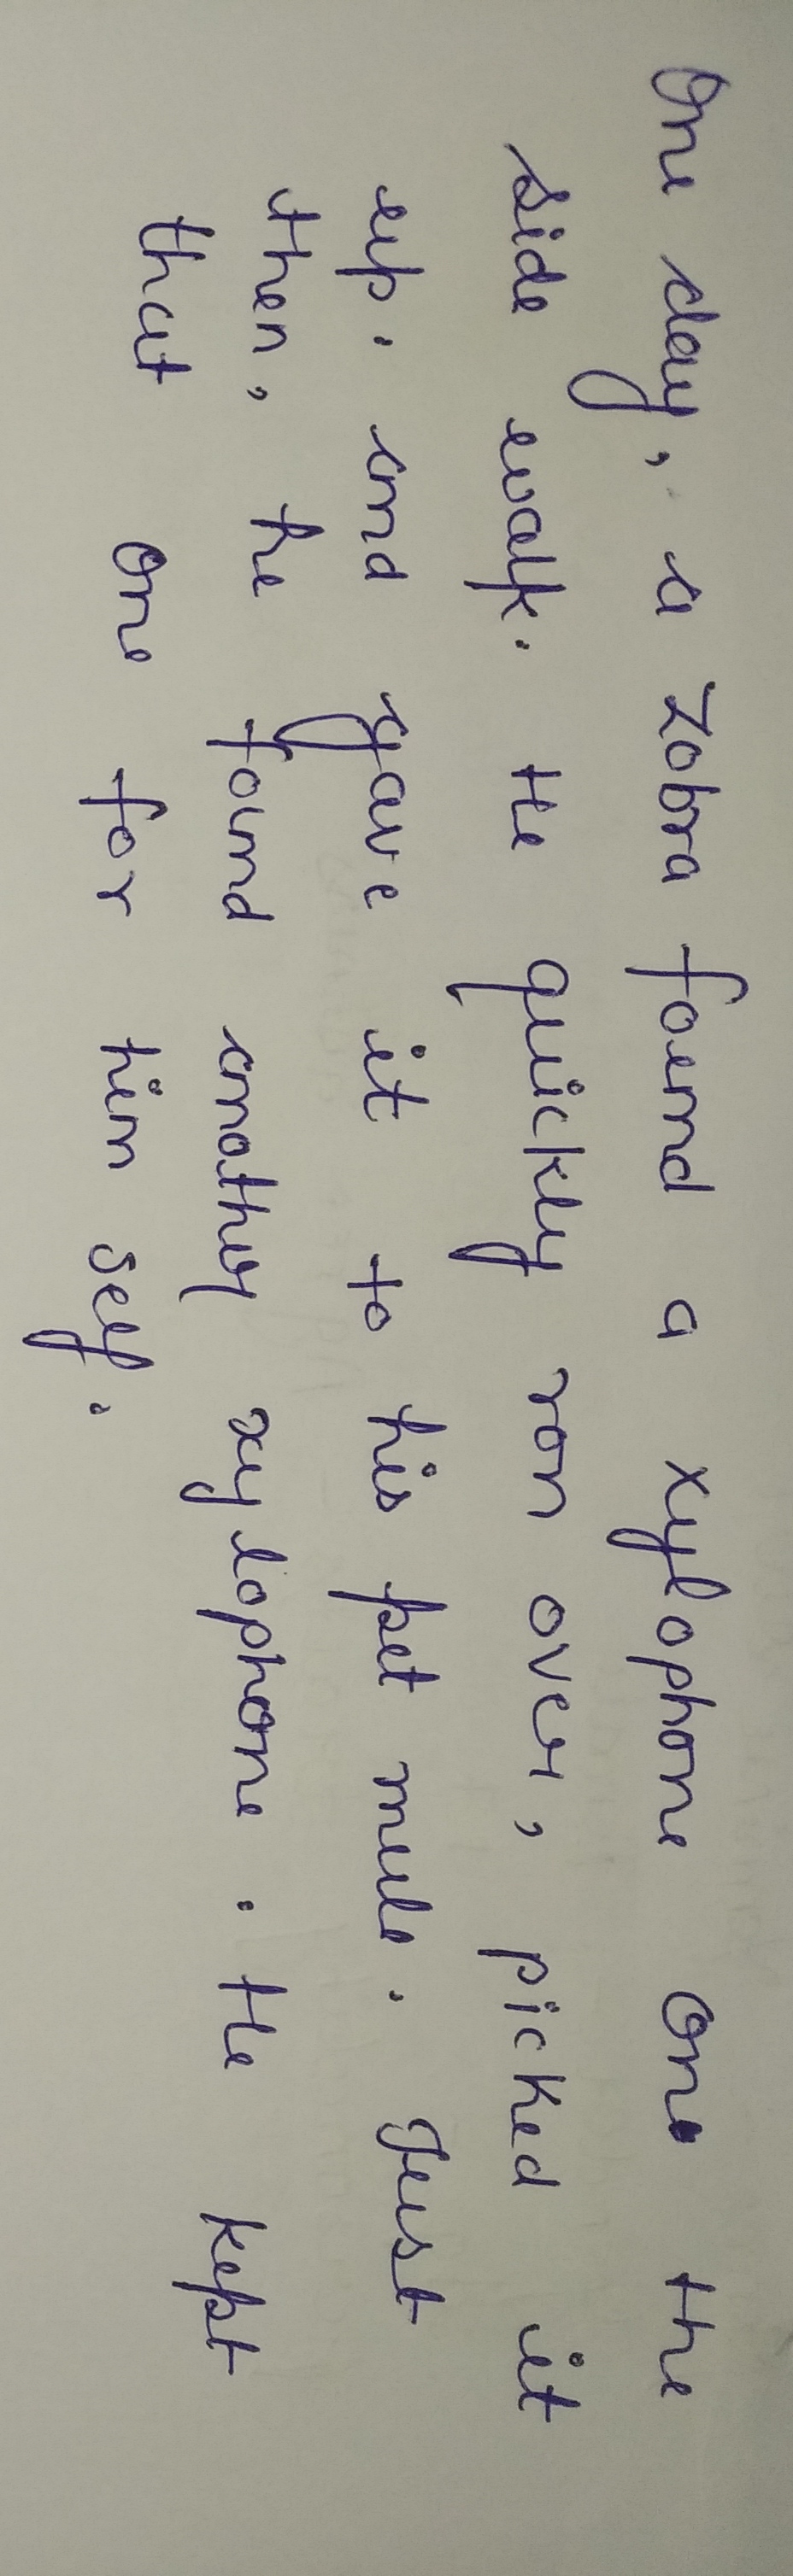 One day, a Zobra found a xylophone on the
side walk. He quickly ron over, picked it
up. and gave it to his pet mule. Just
then, he found another xylophone. He kept
that one for him self.